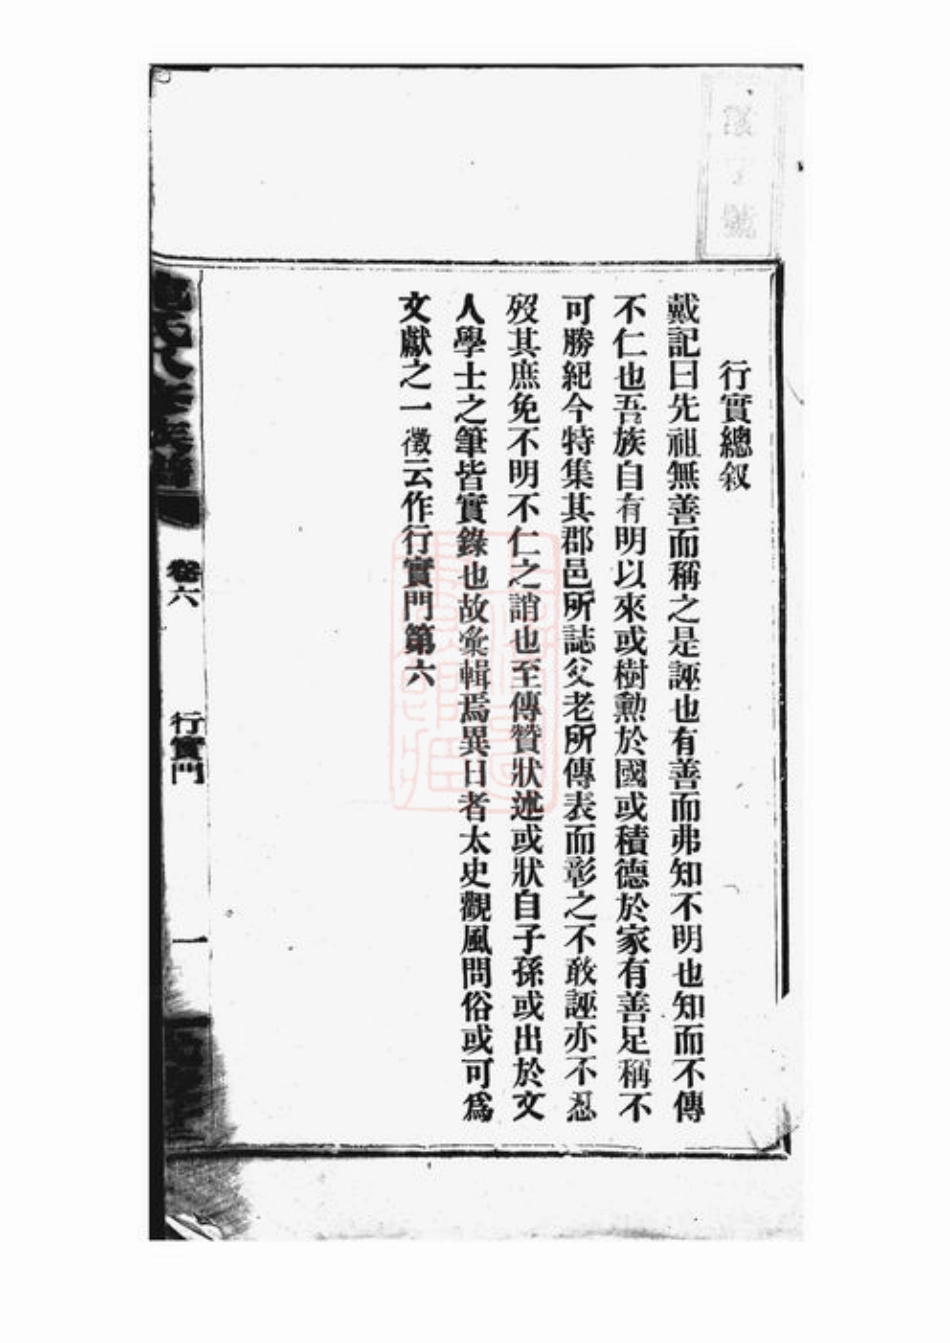 行實總叙
戴記曰先祖無善而稱之是誣也有善而弗知不明也知而不傳
不仁也吾族自有明以來或樹勲於國或積德於家有善足稱不
可勝紀今特集其郡邑所誌父老所傳表而彰之不敢誣亦不忍
歿其庶免不明不仁之誚也至傳贊狀述或狀自子孫或出於文
人學士之筆皆實錄也故彙輯焉異日者太史觀風問俗或可爲
文獻之一徵云作行實門第六
卷六
行實門
一